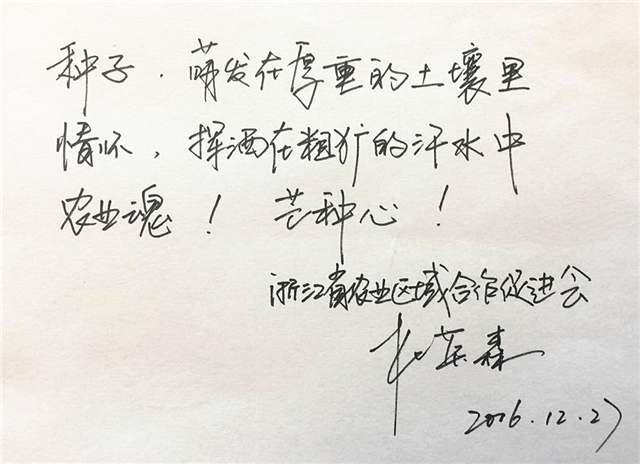 种子，萌发在厚重的土壤里
情怀，挥洒在粗犷的汗水中
农业魂！ 芒种心！
浙江省农业区域合作促进会
森
2016.12.27